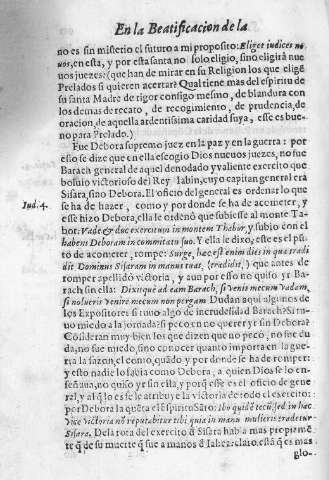 En la Beatificacion de la
no es sin misterio el futuro a mi proposito: Eliget iudices no-
uos, en esta, y por esta santa no solo eligio, sino eligirà nue
uos juezes: (que han de mirar en su Religion los que eligẽ
Prelados si quieren acertar) Qual tiene mas del espiritu de
su santa Madre de rigor consigo mesmo, de blandura con
los demas de recato, de recogimiento, de prudencia, de
oracion, de aquella ardentissima caridad suya, esse es bue-
no para Prelado.)
Fue Debora supremo juez en la paz y en la guerra: por
esso se dize que en ella escogio Dios nueuos juezes, no fue
Barach general de aquel denodado y valiente exercito que
boluio victorioso del Rey Iabin, cuyo capitan general erà
Sisara, sino Debora. El oficio del general es ordenar lo que
Iud. 4.
se ha de hazer, como y por donde se ha de acometer, y
esse hizo Debora, ella le ordenò que subiesse al monte Ta-
bor: Vade & duc exercitum in montem Thabor, y subio con el
habens Deboram in comitatu suo. Y ella le dixo, este es el pũ-
to de acometer, rompe: Surge, hæc est enim dies in qua tradi-
dit Dominus Sisaram in manus tuas, (tradidit,) que antes de
romper apellidò victoria, y aun por esso no quiso yr Ba-
rach sin ella: Dixitque ad eam Barach, si venis mecum vadam,
si nolueris venire mecum non pergam. Dudan aqui algunos de
los Expositores si tuuo algo de incredulidad Barach? Si tu-
uo miedo a la jornada? si peco en no querer yr sin Debora?
Cõsideran muy bien los que dizen que no pecò, no fue du
da, no fue miedo, sino conocer quanto importa en la gue-
rra la sazon, el como, quãdo y por donde se ha de romper:
y esto nadie lo sabia como Debora, a quien Dios se lo en-
señaua, no quiso yr sin ella, y porq̃ esse es el oficio de gene-
ral, y al q̃ lo es se le atribuye la victoria de todo el exercito:
por Debora la quẽta el Espiritu Sãto: Ibo quidẽ tecũ, sed in hac
vice victoria nõ reputabitur tibi quia in manu mulieris tradetur
Sisara. De la rota del exercito de Sisara habla mas propieme
te q̃ de su muerte q̃ fue a manos de Iahel: claro està q̃ es mas
glo-